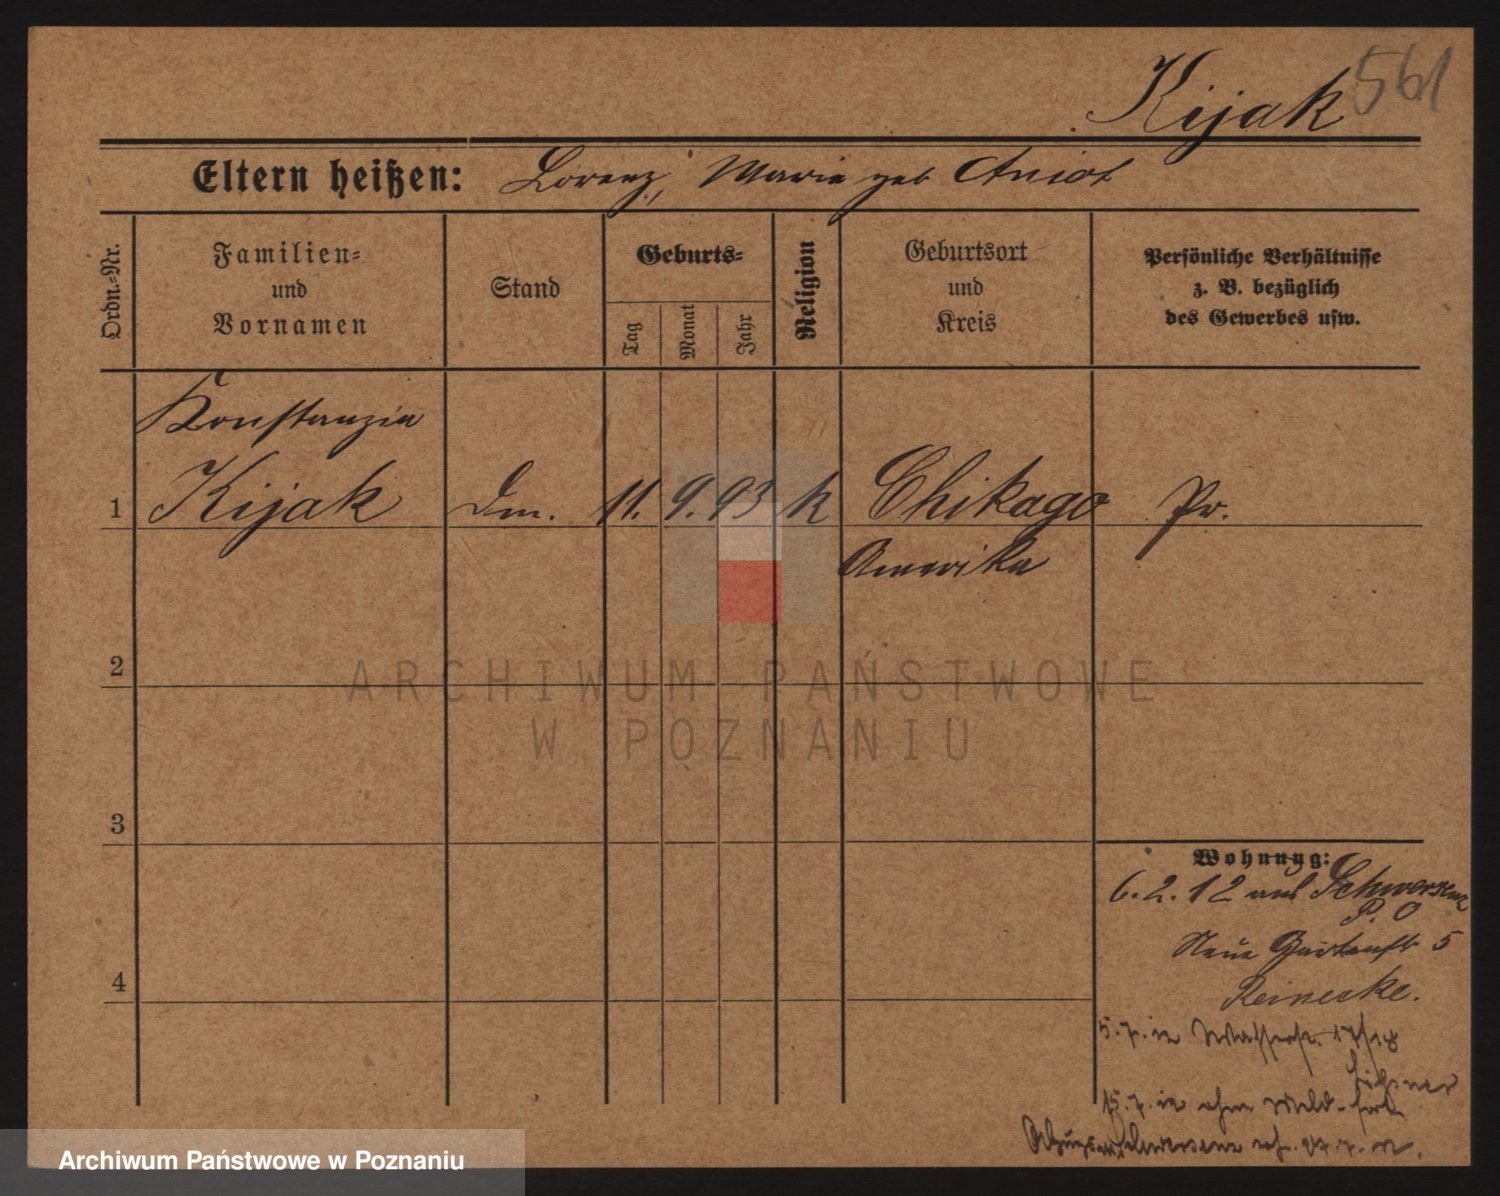 Kijak 561
Eltern heißen: Lorenz, Marie geb Aniol
Ordn.-Nr.
Familien-
und
Vornamen
Stand
Geburts-
Tag
Monat
Jahr
Religion
Geburtsort
und
Kreis
Persönliche Verhältnisse
z. B. bezüglich
des Gewerbes usw.
Konstanzia
1 Kijak Dm. 11. 9. 93 k Chikago Pr.
Amerika
2
ARCHIWUM PAŃSTWOWE
W POZNANIU
3
Wohnung:
6.2.12 aus Schwersenz
P. O
Neue Gartenstr 5
4
Reinecke.
5.7.12 Wasserstr. 17/18
15.7.12 ohne Meld-
Schwersenz
Archiwum Państwowe w Poznaniu